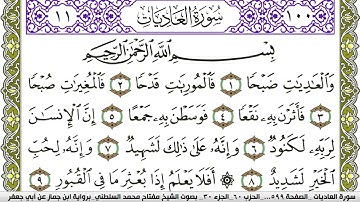 ١١ سُورَةُ العَادِيَاتِ ١٠٠
بِسْمِ اللَّهِ الرَّحْمَٰنِ الرَّحِيمِ
وَالْعَادِيَاتِ ضَبْحًا ١ فَالْمُورِيَاتِ قَدْحًا ٢ فَالْمُغِيرَاتِ صُبْحًا
٣ فَأَثَرْنَ بِهِ نَقْعًا ٤ فَوَسَطْنَ بِهِ جَمْعًا ٥ إِنَّ الْإِنسَانَ
لِرَبِّهِ لَكَنُودٌ ٦ وَإِنَّهُ عَلَىٰ ذَٰلِكَ لَشَهِيدٌ ٧ وَإِنَّهُ لِحُبِّ
الْخَيْرِ لَشَدِيدٌ ٨ أَفَلَا يَعْلَمُ إِذَا بُعْثِرَ مَا فِي الْقُبُورِ
سورة العاديات الصفحة ٥٩٩ـ الحزب ٦٠ الجزء ٣٠ بصوت الشيخ مفتاح محمد السلطني برواية ابن جماز عن أبي جعفر